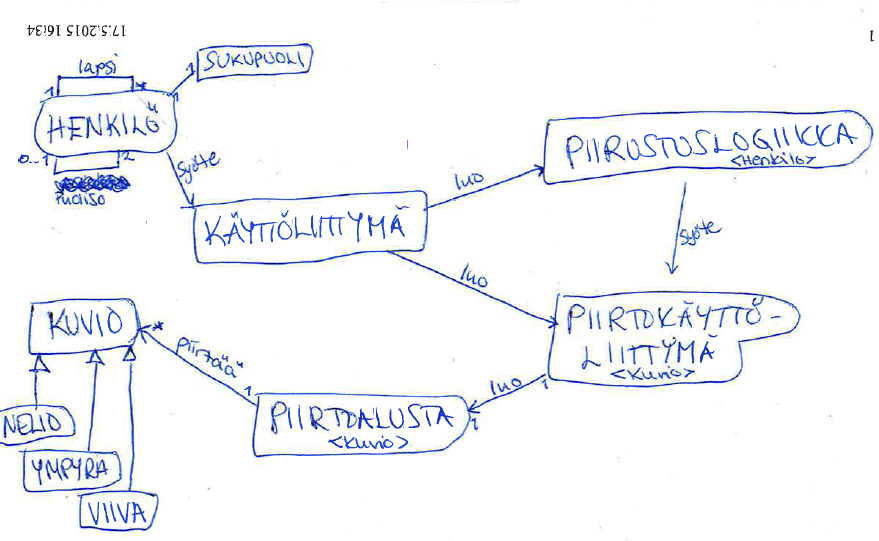 17.5.2015 16:34
1
lapsi
1
*
SUKUPUOLI
1
1
HENKILÖ
0..1
2
Puoliso
syöte
KÄYTTÖLIITTYMÄ
luo
PIIRUSTUSLOGIIKKA
<Henkilo>
syöte
luo
PIIRTOKÄYTTÖ-
LIITTYMÄ
<Kuvio>
1
luo
1
PIIRTOALUSTA
<Kuvio>
1
piirtää
*
KUVIO
NELIO
YMPYRA
VIIVA